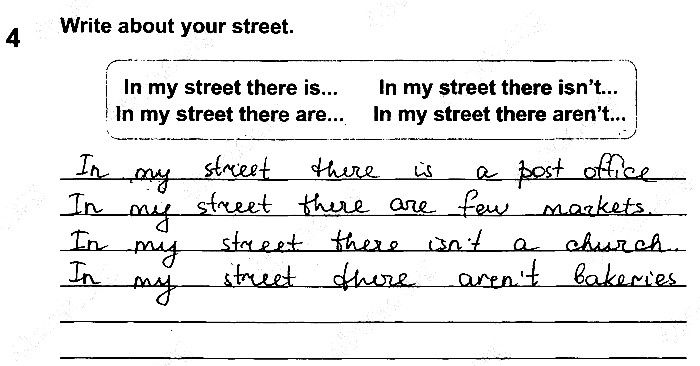 4 Write about your street.
In my street there is... In my street there isn't...
In my street there are... In my street there aren't...
In my street there is a post office
In my street there are few markets.
In my street there isn't a church.
In my street there aren't bakeries